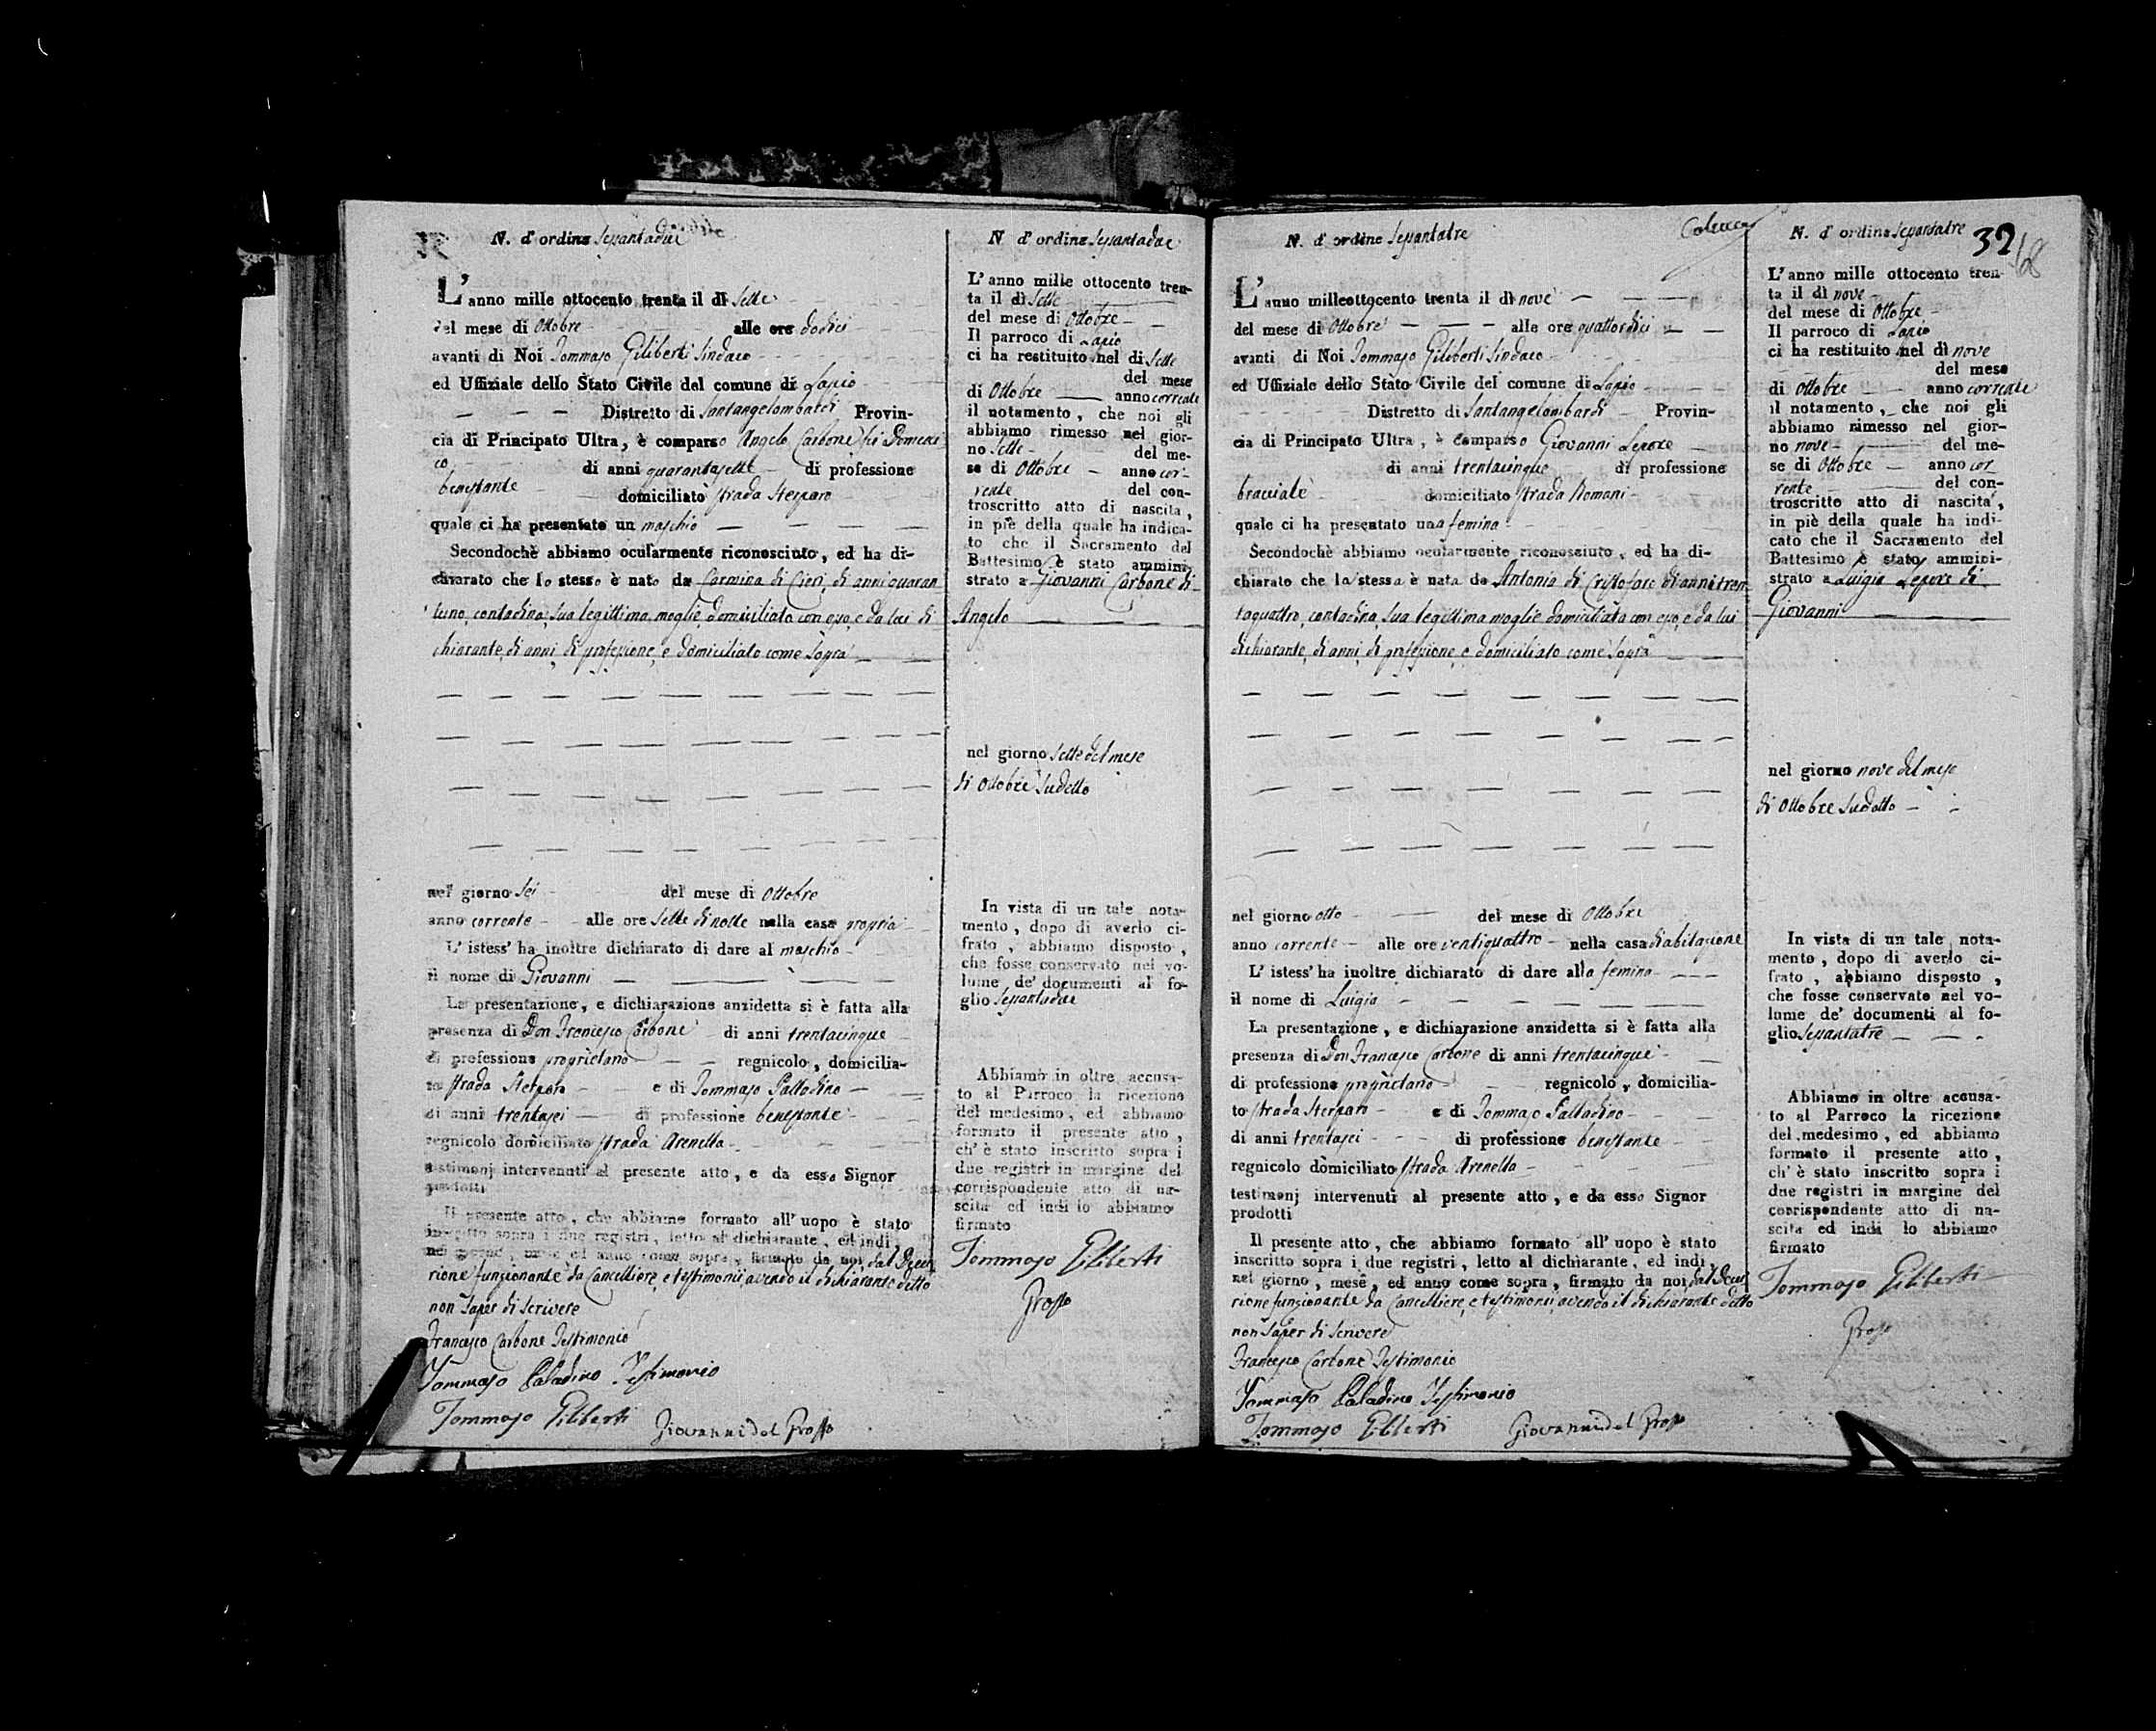 N. d'ordine Sessantadue
L'anno mille ottocento trenta il dì Sette
del mese di Ottobre alle ore dodici
avanti di Noi Tommaso Giliberti Sindaco
ed Uffiziale dello Stato Civile del comune di Lapio
Distretto di Santangelombardi Provin-
cia di Principato Ultra, è comparso Angelo Carbone fu Domeni
co di anni quarantasette di professione
benestante domiciliato strada Sterparo
quale ci ha presentato un maschio
Secondochè abbiamo ocularmente riconosciuto, ed ha di-
chiarato che lo stesso è nato da Carmina di Cieri, di anni quaran
tuno, contadina, sua legittima moglie domiciliata con esso, e da lui di
chiarante, di anni, di professione, e domiciliato come sopra
nel giorno Sei del mese di Ottobre
anno corrente alle ore Sette di notte nella casa propria
L'istess' ha inoltre dichiarato di dare al maschio
il nome di Giovanni
La presentazione, e dichiarazione anzidetta si è fatta alla
presenza di Don Francesco Carbone di anni trentacinque
di professione proprietario regnicolo, domicilia-
to strada Sterparo e di Tommaso Palladino
di anni trentasei di professione benestante
regnicolo domiciliato strada Arenella
testimonj intervenuti al presente atto, e da esso Signor
prodotti
Il presente atto, che abbiamo formato all'uopo è stato
inscritto sopra i due registri, letto al dichiarante, ed indi,
nel giorno, mese ed anno come sopra, firmato da noi, dal Decu
rione funzionante da Cancelliere, e testimonii avendo il dichiarante detto
non saper di scrivere
Francesco Carbone Testimonio
Tommaso Paladino Testimonio
Tommaso Giliberti Giovanni del Grosso
N d'ordine Sessantadue
L'anno mille ottocento tren-
ta il dì Sette
del mese di Ottobre
Il parroco di Lapio
ci ha restituito nel dì Sette
del mese
di Ottobre anno corrente
il notamento, che noi gli
abbiamo rimesso nel gior-
no Sette del me-
se di Ottobre anno cor-
rente del con-
troscritto atto di nascita,
in piè della quale ha indica-
to che il Sacramento del
Battesimo è stato ammini-
strato a Giovanni Carbone di
Angelo
nel giorno Sette del mese
di Ottobre Sudetto
In vista di un tale nota-
mento, dopo di averlo ci-
frato, abbiamo disposto,
che fosse conservato nel vo-
lume de' documenti al fo-
glio Sessantadue
Abbiamo in oltre accusa-
to al Parroco la ricezione
del medesimo, ed abbiamo
formato il presente atto,
ch'è stato inscritto sopra i
due registri in margine del
corrispondente atto di na-
scita ed indi lo abbiamo
firmato
Tommaso Giliberti
Grosso
N. d'ordine Sessantatre
L'anno milleottocento trenta il dì nove
del mese di Ottobre alle ore quattordici
avanti di Noi Tommaso Giliberti Sindaco
ed Uffiziale dello Stato Civile del comune di Lapio
Distretto di Santangelombardi Provin-
cia di Principato Ultra, è comparso Giovanni Lepore
di anni trentacinque di professione
bracciale domiciliato strada Romani
quale ci ha presentato una femina
Secondochè abbiamo ocularmente riconosciuto, ed ha di-
chiarato che la stessa è nata da Antonia di Cristofaro di anni tren
taquattro, contadina, sua legittima moglie domiciliata con esso, e da lui
dichiarante, di anni, di professione, e domiciliato come sopra
nel giorno otto del mese di Ottobre
anno corrente alle ore ventiquattro nella casa di abitazione
L'istess' ha inoltre dichiarato di dare alla femina
il nome di Luigia
La presentazione, e dichiarazione anzidetta si è fatta alla
presenza di Don Francesco Carbone di anni trentacinque
di professione proprietario regnicolo, domicilia-
to strada Sterparo e di Tommaso Palladino
di anni trentasei di professione benestante
regnicolo domiciliato strada Arenella
testimonj intervenuti al presente atto, e da esso Signor
prodotti
Il presente atto, che abbiamo formato all'uopo è stato
inscritto sopra i due registri, letto al dichiarante, ed indi,
nel giorno, mese, ed anno come sopra, firmato da noi, dal Decu
rione funzionante da Cancelliere, e testimonii avendo il dichiarante detto
non saper di scrivere
Francesco Carbone Testimonio
Tommaso Paladino Testimonio
Tommaso Giliberti Giovanni del Grosso
N. d'ordine Sessantatre 32
L'anno mille ottocento tren-
ta il dì nove
del mese di Ottobre
Il parroco di Lapio
ci ha restituito nel dì nove
del mese
di Ottobre anno corrente
il notamento, che noi gli
abbiamo rimesso nel gior-
no nove del me-
se di Ottobre anno cor
rente del con-
troscritto atto di nascita,
in piè della quale ha indi-
cato che il Sacramento del
Battesimo è stato ammini-
strato a Luigia Lepore di
Giovanni
nel giorno nove del mese
di Ottobre Sudetto
In vista di un tale nota-
mento, dopo di averlo ci-
frato, abbiamo disposto,
che fosse conservato nel vo-
lume de' documenti al fo-
glio Sessantatre
Abbiamo in oltre accusa-
to al Parroco la ricezione
del medesimo, ed abbiamo
formato il presente atto,
ch'è stato inscritto sopra i
due registri in margine del
corrispondente atto di na-
scita ed indi lo abbiamo
firmato
Tommaso Giliberti
Grosso